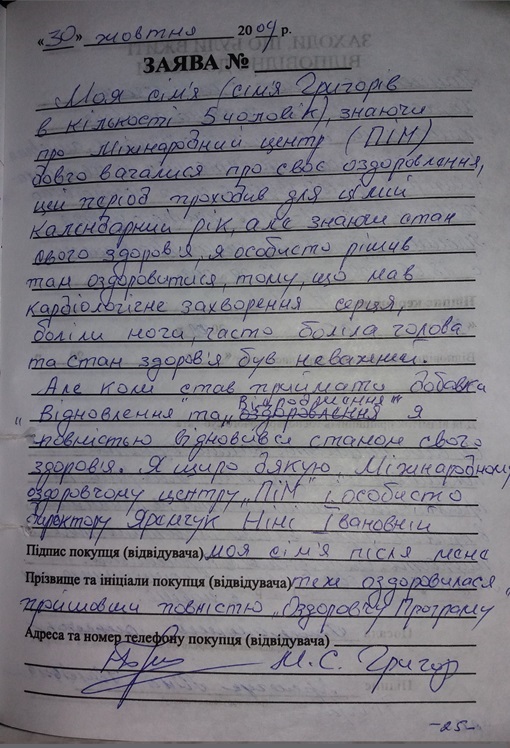 «30» жовтня 2009 р.
ЗАЯВА №
Моя сім'я (сім'я Григорів
в кількості 5 чоловік), знаючи
про Міжнародний центр (ПІМ)
довго вагалися про своє оздоровлення,
цей період проходив для цілий
календарний рік, але знаючи стан
свого здоров'я, я особисто рішив
там оздоровитися, тому, що мав
кардіологічне захворення серця,
боліли нога, часто боліла голова
та стан здоров'я був неважний.
Але коли став приймати добавки
Відродження"
„Відновлення" та „оздоровлення я
повністю відновився станом свого
здоров'я. Я щиро дякую Міжнародному
оздорочому центру „ПІМ" і особисто
директору Яремчук Ніні Івановній
Підпис покупця (відвідувача) моя сім'я після мене
Прізвище та ініціали покупця (відвідувача) теж оздоровилася
пройшовши повністю „Оздоровчу Програму"
Адреса та номер телефону покупця (відвідувача)
М. С. Григор
-25-